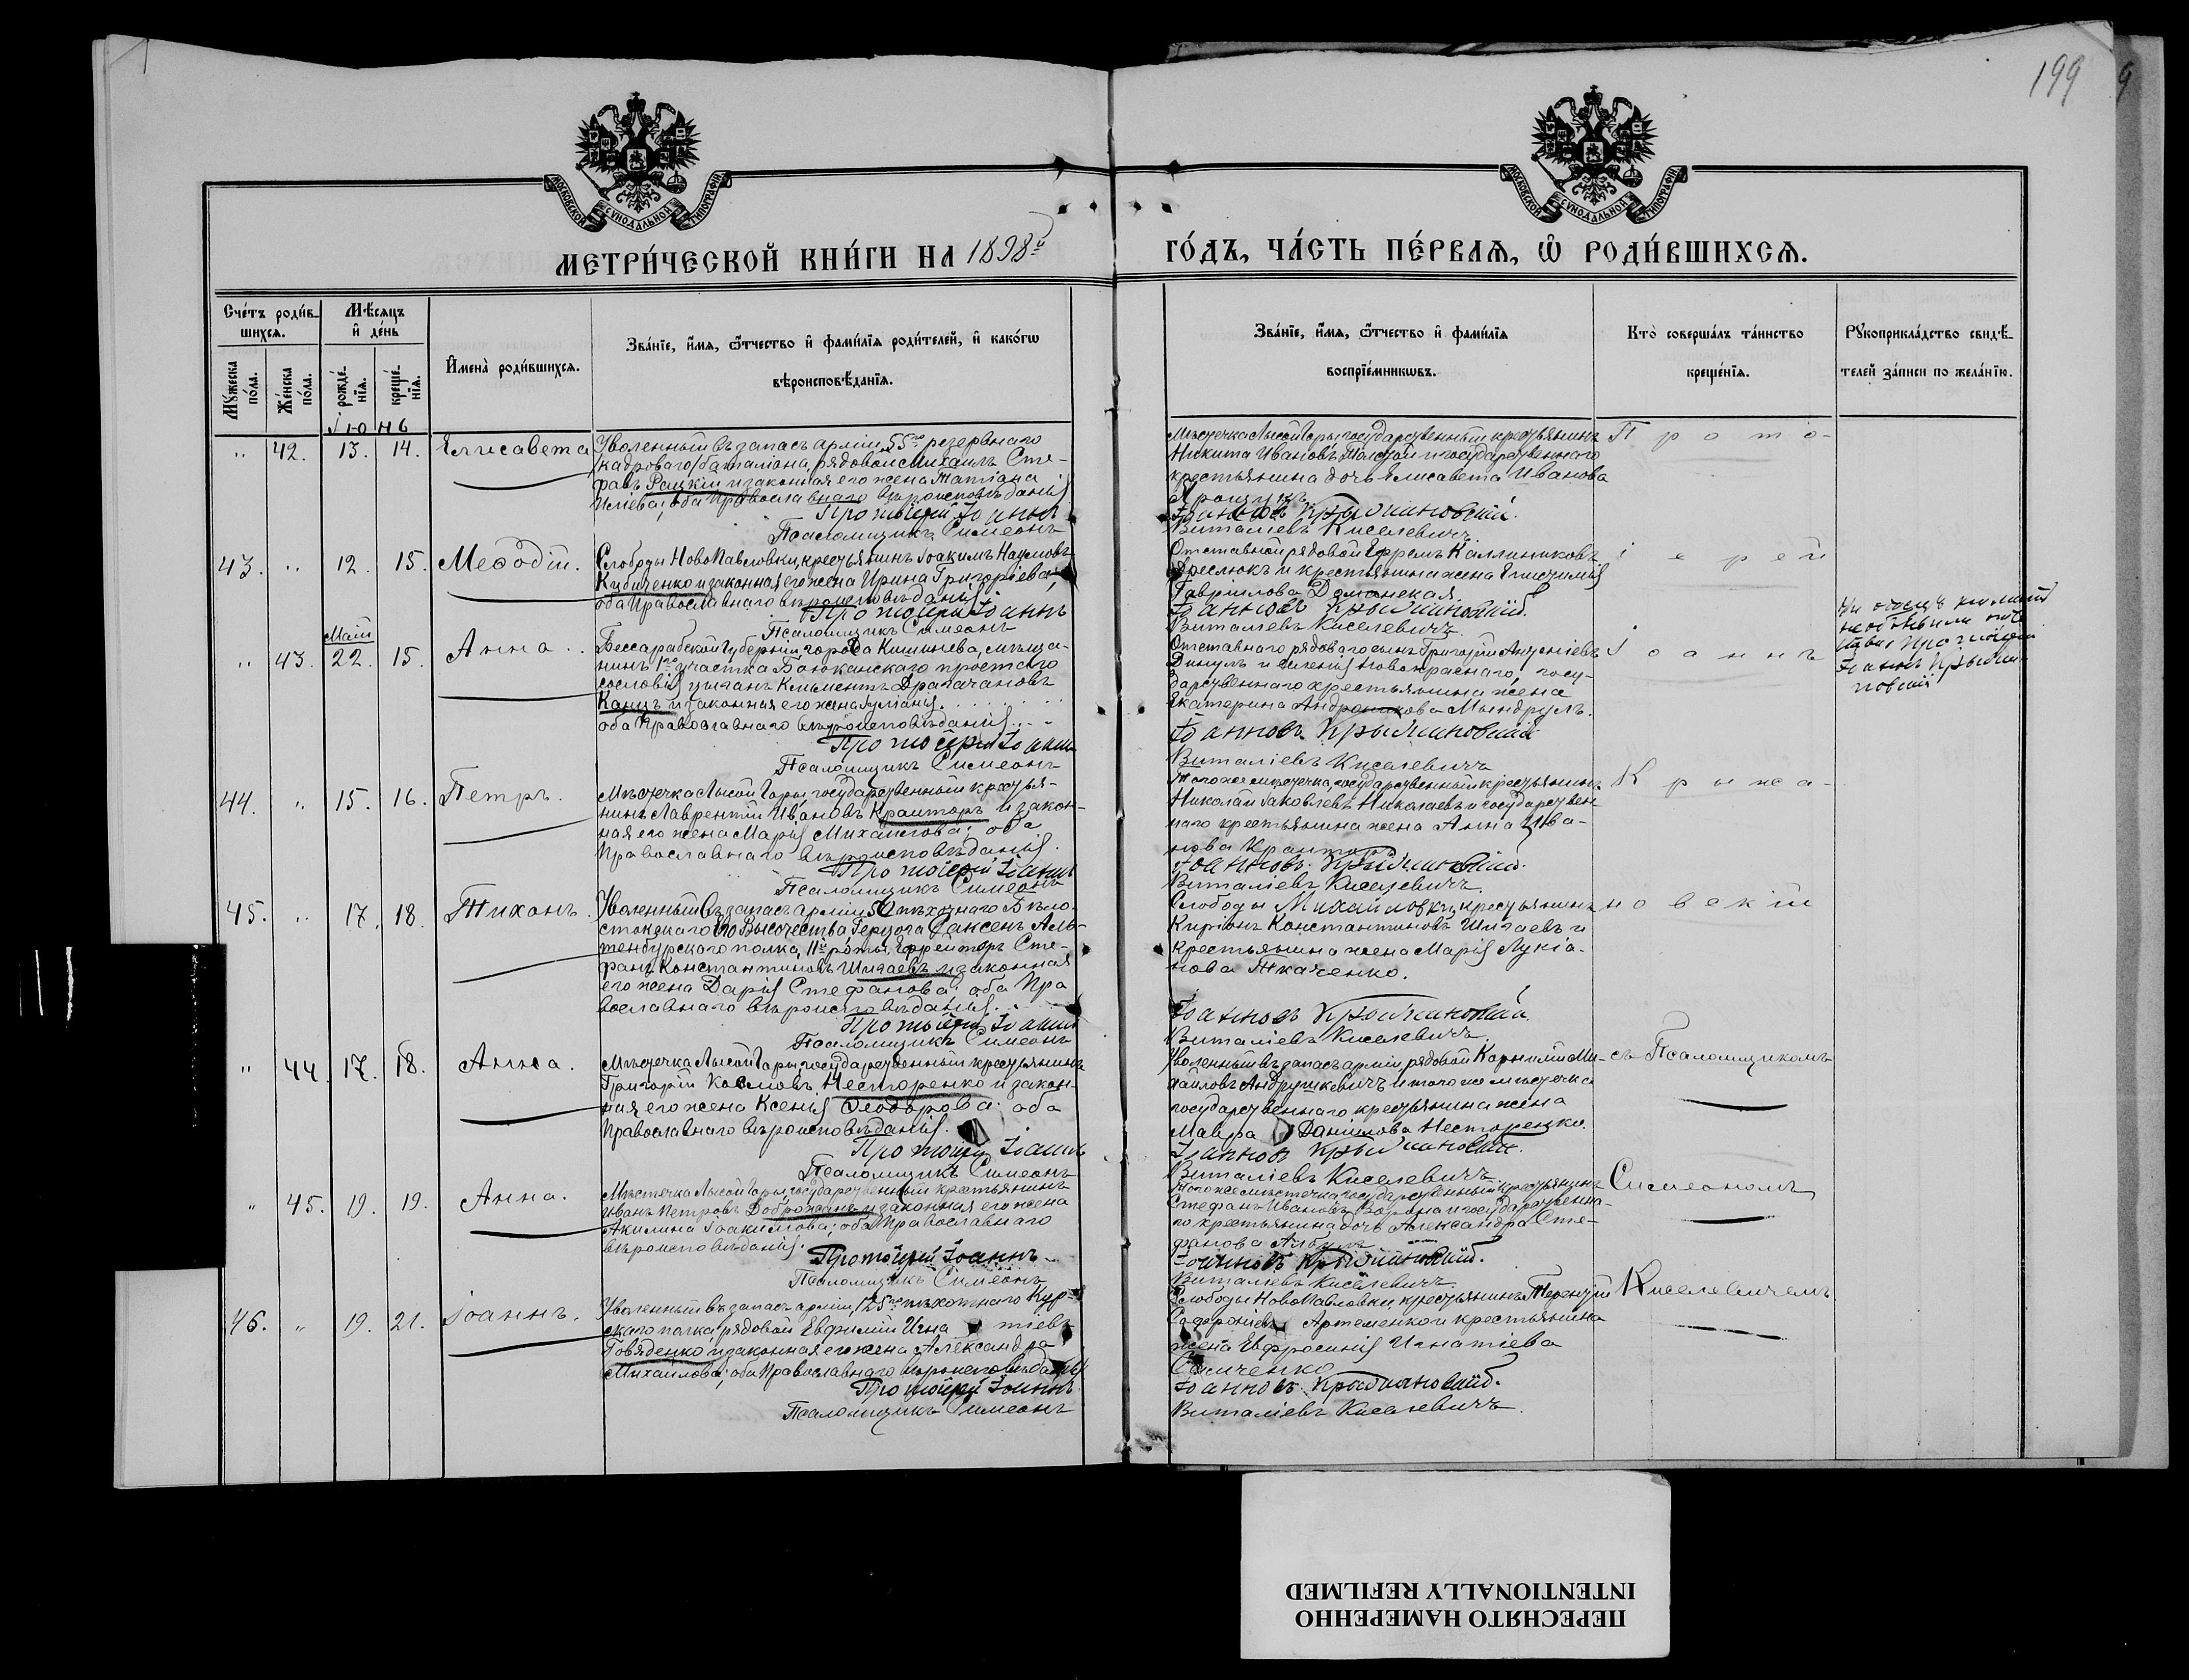 199
МОСКОВСКОЙ СѴНОДАЛЬНОЙ ТИПОГРАФІИ
МОСКОВСКОЙ СѴНОДАЛЬНОЙ ТИПОГРАФІИ
МЕТРИ́ЧЕСКОЙ КНИ́ГИ НА 1898й
ГО́ДЪ, ЧА́СТЬ ПЕ́РВАѦ, Ѡ҆ РОДИ́ВШИХСѦ.
Сче́тъ роди́в-
шихсѧ.
Мꙋ́жеска
по́ла.
Же́нска
по́ла.
Мѣ́сѧцъ
и҆ де́нь
рожде́-
нїѧ.
креще́-
нїѧ.
И҆мена̀ роди́вшихсѧ.
Зва́нїе, и҆́мѧ, ѻ҆́тчество и҆ фами́лїѧ роди́телей, и҆ како́гѡ
вѣроисповѣ́данїѧ.
Зва́нїе, и҆́мѧ, ѻ҆́тчество и҆ фами́лїѧ
воспрїе́мникѡвъ.
Кто̀ соверша́лъ та́инство
креще́нїѧ.
Рꙋкоприкла́дство свидѣ́-
телей за́писи по жела́нїю.
Іюнь
„ 42. 13. 14. Елисавета
Уволенный въ запасъ арміи 55го резервнаго
кадроваго баталіона, рядовой Михаилъ Сте-
фовъ Рацкій и законная его жена Татіана
Исаева; оба Православнаго вѣроисповѣданія
Протоіерей Іоаннъ
Псаломщикъ Симеонъ
Мѣстечка Лысой Горы, государственный крестьянинъ
Никита Ивановъ Толстой и государственнаго
крестьянина дочь Елисавета Иванова
Іоанновъ Крыжановскій.
Виталіевъ Киселевичъ.
Прото-
43. „ 12. 15. Меѳодій.
Слободы НовоПавловки, крестьянинъ Іоакимъ Наумовъ
и законная его жена Ирина Григоріева;
оба Православнаго вѣроисповѣданія
Протоіерей Іоаннъ
Псаломщикъ Симеонъ
Отставной рядовой Ефремъ Каллиниковъ
и крестьянина жена
Гавриилова Доманская.
Іоанновъ Крыжановскій.
Виталіевъ Киселевичъ.
іерей
Май
„ 43. 22. 15. Анна.
Бессарабской Губерніи города Кишинева, мѣща-
нинъ 1го участка Баюканскаго простаго
сословія цыганъ Климентъ Драгачановъ
Канцъ и законная его жена Іуліанія.
оба Православнаго вѣроисповѣданія.
Протоіерей Іоаннъ
Псаломщикъ Симеонъ
Отставнаго рядоваго сынъ Григорій Антоніевъ
и селенія Новокраснаго, госу-
дарственнаго крестьянина жена
Екатерина Андроникова Мындрулъ.
Іоанновъ Крыжановскій
Виталіевъ Киселевичъ
Іоаннъ
Протоіерей
Іоаннъ Крыжа-
новскій
44. „ 15. 16. Петръ.
Мѣстечка Лысой Горы, государственный крестья-
нинъ Лаврентій Ивановъ Краиторъ и закон-
ная его жена Марія Михаилова; оба
Православнаго вѣроисповѣданія.
Протоіерей Іоаннъ
Псаломщикъ Симеонъ
Того же мѣстечка, государственный крестьянинъ
Николай Іаковлевъ Николаевъ и государствен-
наго крестьянина жена Анна Ива-
нова
Іоанновъ Крыжановскій.
Виталіевъ Киселевичъ.
Крыжа-
45. „ 17. 18. Тихонъ.
Уволенный въ запасъ арміи 50 пѣхотнаго Бѣло-
стокскаго Его Высочества Герцога Саксенъ Аль-
тенбурскаго полка, 11й роты, Ефрейторъ Сте-
фанъ Константиновъ Шигаевъ и законная
его жена Дарія Стефанова; оба Пра
вославнаго вѣроисповѣданія.
Протоіерей Іоаннъ
Псаломщикъ Симеонъ
Слободы Михайловки, крестьянинъ
Киріонъ Константиновъ Шигаевъ и
крестьянина жена Марія Лукіа-
нова Ткаченко.
Іоанновъ Крыжановскій.
Виталіевъ Киселевичъ.
новскій
„ 44. 17. 18. Анна.
Мѣстечка Лысой Горы, государственный крестьянинъ
Григорій Космовъ Несторенко и закон-
ная его жена Ксенія Ѳеодорова; оба
Православнаго вѣроисповѣданія.
Протоіерей Іоаннъ
Псаломщикъ Симеонъ
Уволенный въ запасъ арміи, рядовой Корнилій Ми-
хайловъ Андрушкевичъ и того же мѣстечка
государственнаго крестьянина жена
Мавра Даніилова Несторенко.
Іоанновъ Крыжановскій.
Виталіевъ Киселевичъ
съ Псаломщикомъ
„ 45. 19. 19. Анна.
Мѣстечка Лысой Горы, государственный крестьянинъ
Иванъ Петровъ Доброжанъ и законная его жена
Акилина Іоакимова; оба Православнаго
вѣроисповѣданія.
Протоіерей Іоаннъ
Псаломщикъ Симеонъ
Того же мѣстечка государственный крестьянинъ
Стефанъ Ивановъ Ворона и государственна-
го крестьянина дочь Александра Сте-
фанова
Іоанновъ Крыжановскій.
Виталіевъ Киселевичъ.
Симеономъ
46. „ 19. 21. Іоаннъ.
Уволенный въ запасъ арміи, 125го пѣхотнаго Кур-
скаго полка, рядовой Евфимій Игна тіевъ
Говяденко и законная его жена Александра
Михаилова; оба Православнаго вѣроисповѣданія
Протоіерей Іоаннъ
Псаломщикъ Симеонъ
Слободы НовоПавловки, крестьянинъ Терентій
Софроніевъ Артеменко и крестьянина
жена Евфросинія Игнатіева
Іоанновъ Крыжановскій.
Виталіевъ Киселевичъ.
Киселевичемъ
ПЕРЕСНЯТО НАМЕРЕННО
INTENTIONALLY REFILMED